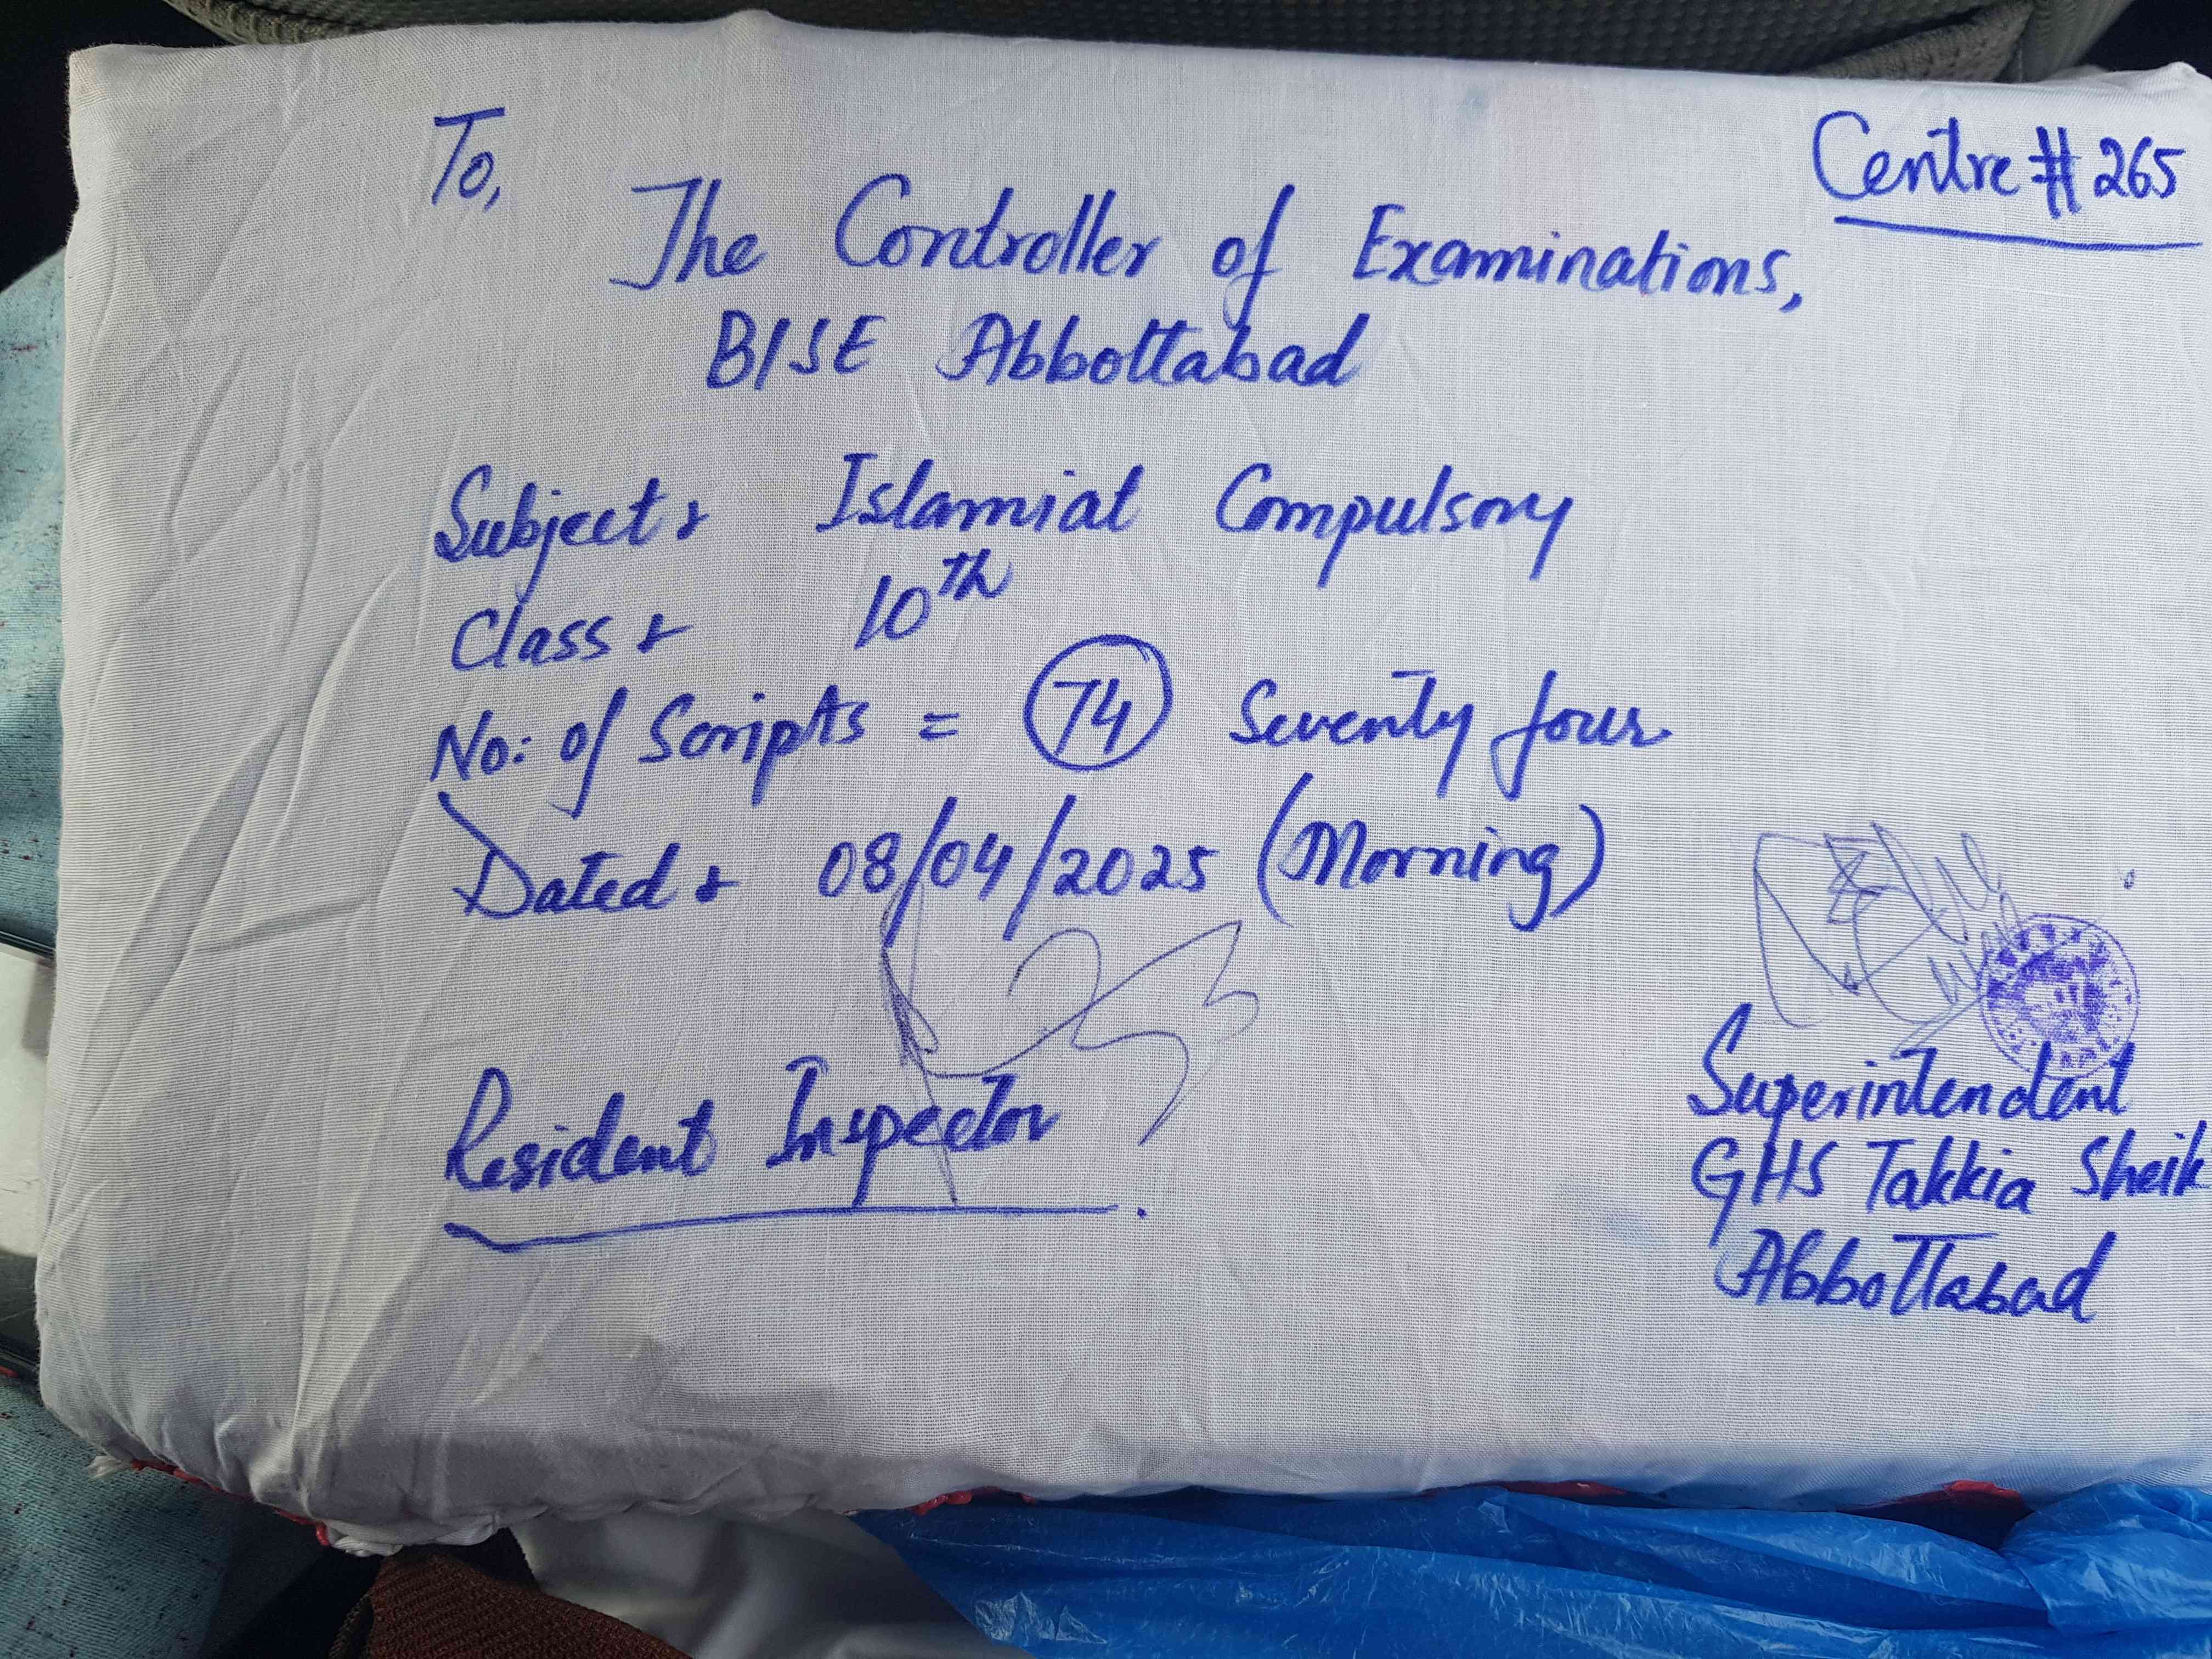 To,
Centre # 265
The Controller of Examinations,
BISE Abbottabad
Subject: Islamiat Compulsory
Class: 10th
No: of Scripts = 74 Seventy four
Dated: 08/04/2025 (Morning)
Resident Inspector
Superintendent
GHS Takkia Sheik
Abbottabad